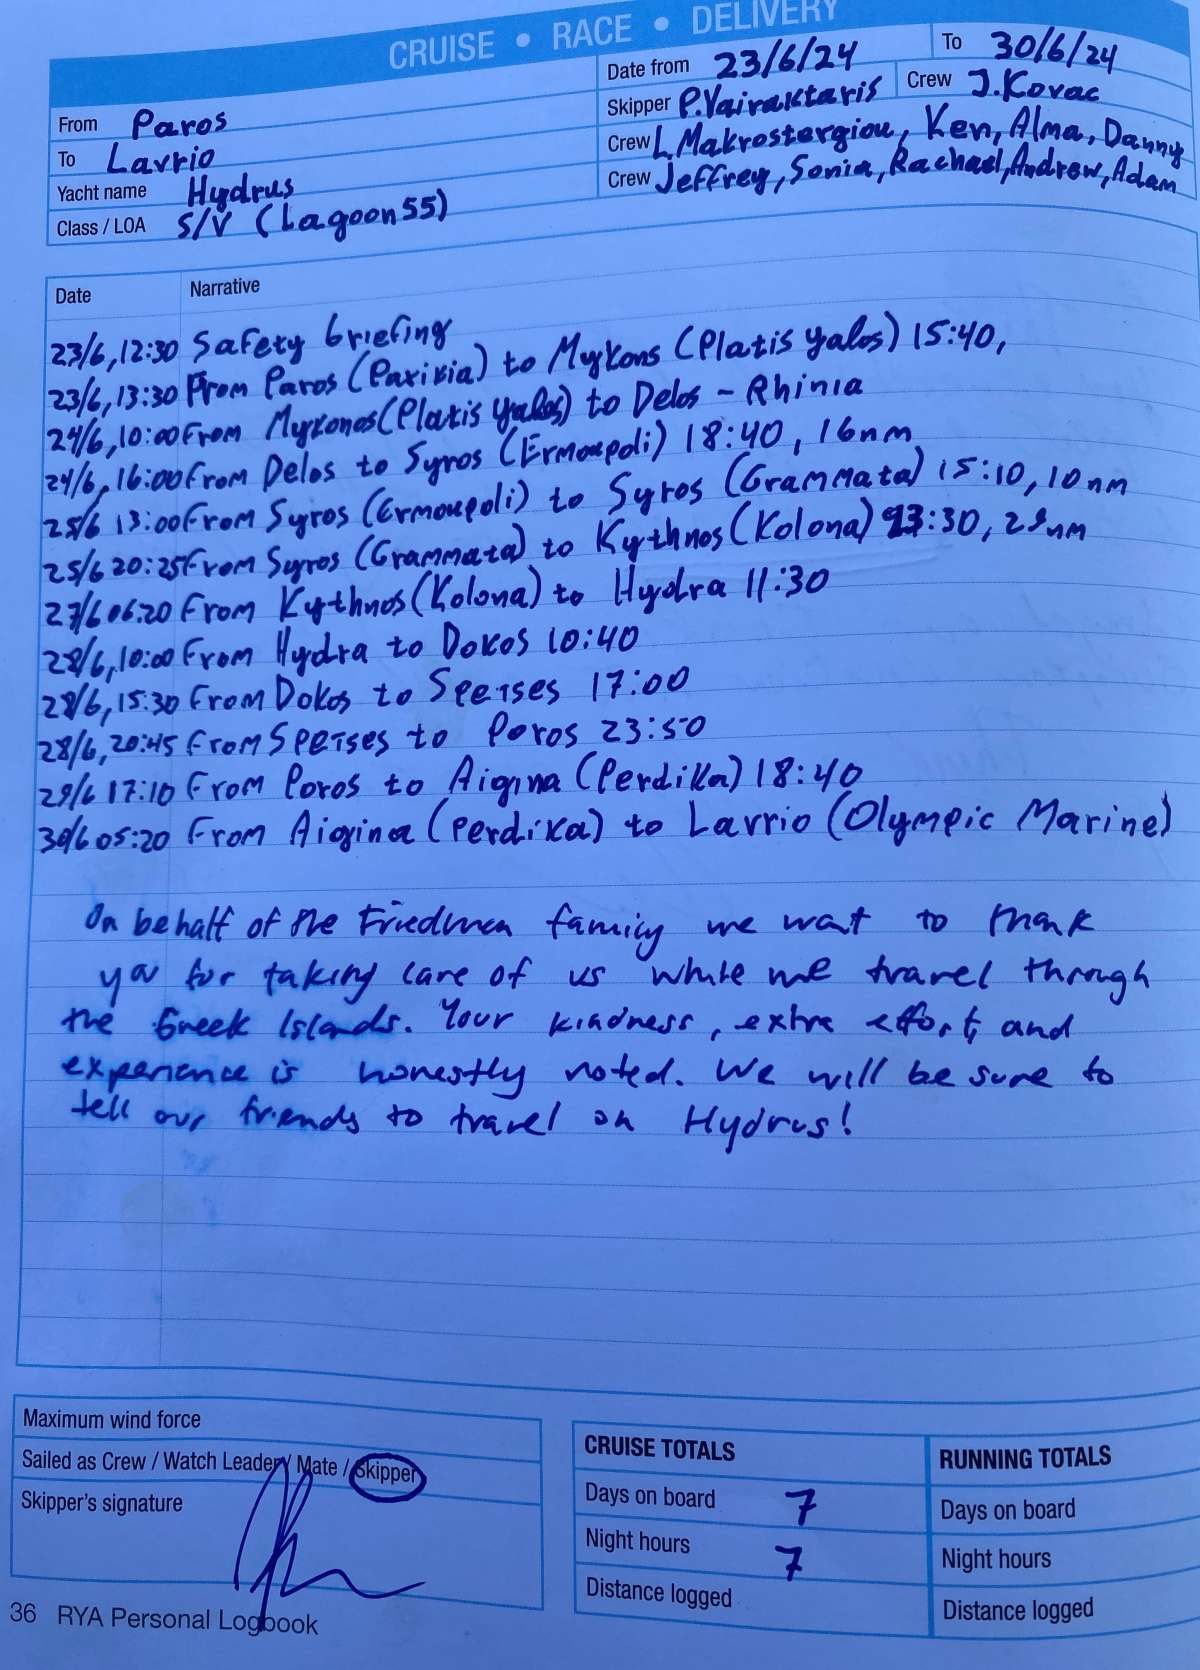 CRUISE • RACE • DELIVERY
From Paros
To Lavrio
Yacht name Hydrus
Class / LOA S/V (Lagoon 55)
Date from 23/6/24 To 30/6/24
Skipper P.Vairaktaris Crew J.Kovac
Crew L.Makrostergiou, Ken, Alma, Danny
Crew Jeffrey, Sonia, Rachael, Andrew, Adam
Date Narrative
23/6, 12:30 Safety briefing
23/6, 13:30 From Paros (Parikia) to Mykons (Platis yalos) 15:40,
24/6, 10:00 From Mykonos (Platis yalos) to Delos - Rhinia
24/6, 16:00 From Delos to Syros (Ermoupoli) 18:40, 16nm
25/6 13:00 From Syros (Ermoupoli) to Syros (Grammata) 15:10, 10nm
25/6 20:25 From Syros (Grammata) to Kythnos (Kolona) 23:30, 29nm
27/6 06:20 From Kythnos (Kolona) to Hydra 11:30
28/6, 10:00 From Hydra to Dokos 10:40
28/6, 15:30 From Dokos to Spetses 17:00
28/6, 20:45 From Spetses to Poros 23:50
29/6 17:10 From Poros to Aigina (Perdika) 18:40
30/6 05:20 From Aigina (Perdika) to Lavrio (Olympic Marine)
On behalf of the Friedman family we want to thank
you for taking care of us while we travel through
the Greek Islands. Your kindness, extra effort, and
experience is honestly noted. We will be sure to
tell our friends to travel on Hydrus!
Maximum wind force
Sailed as Crew / Watch Leader / Mate / Skipper
Skipper's signature
CRUISE TOTALS
Days on board 7
Night hours 7
Distance logged
RUNNING TOTALS
Days on board
Night hours
Distance logged
36 RYA Personal Logbook